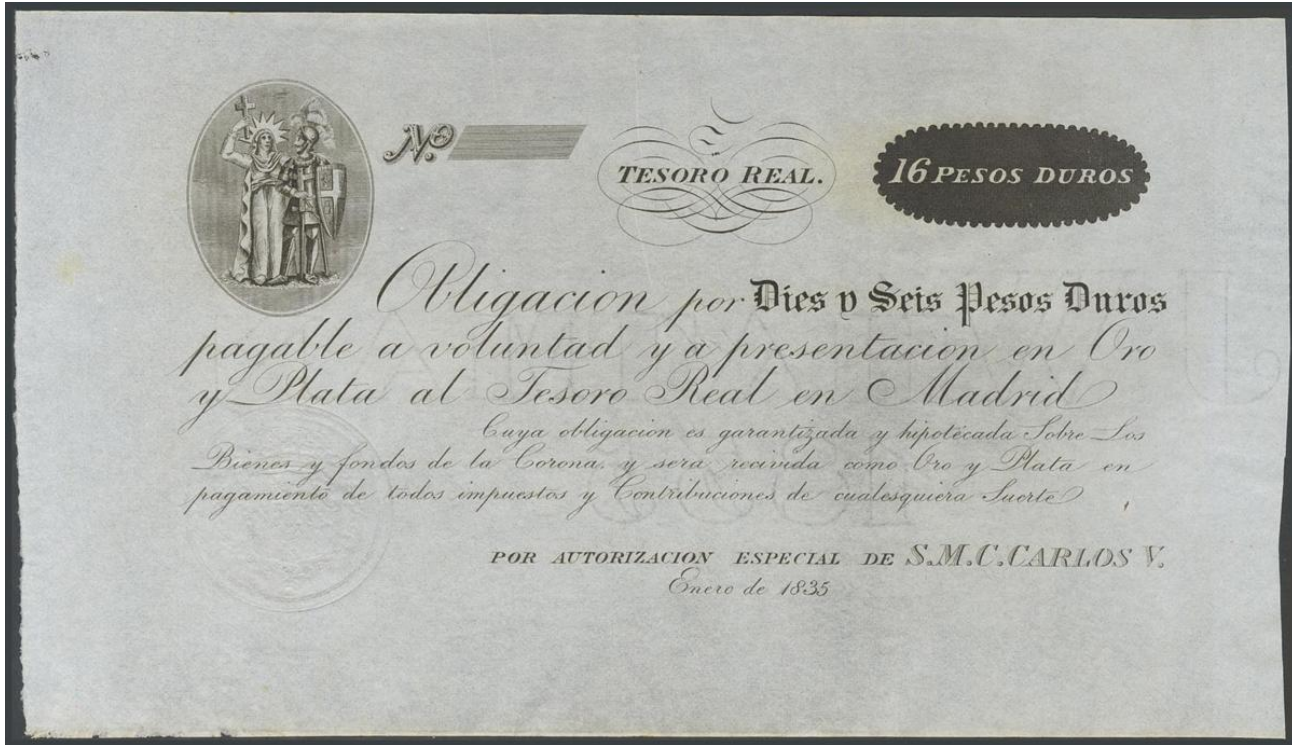 No.
TESORO REAL.
16 PESOS DUROS
Obligacion por Dies y Seis Pesos Duros
pagable a voluntad y a presentacion en Oro
y Plata al Tesoro Real en Madrid
Cuya obligacion es garantizada y hipotécada Sobre Los
Bienes y fondos de la Corona, y sera recivida como Oro y Plata en
pagamiento de todos impuestos y Contribuciones de cualesquiera Suerte
POR AUTORIZACION ESPECIAL DE S.M.C. CARLOS V.
Enero de 1835